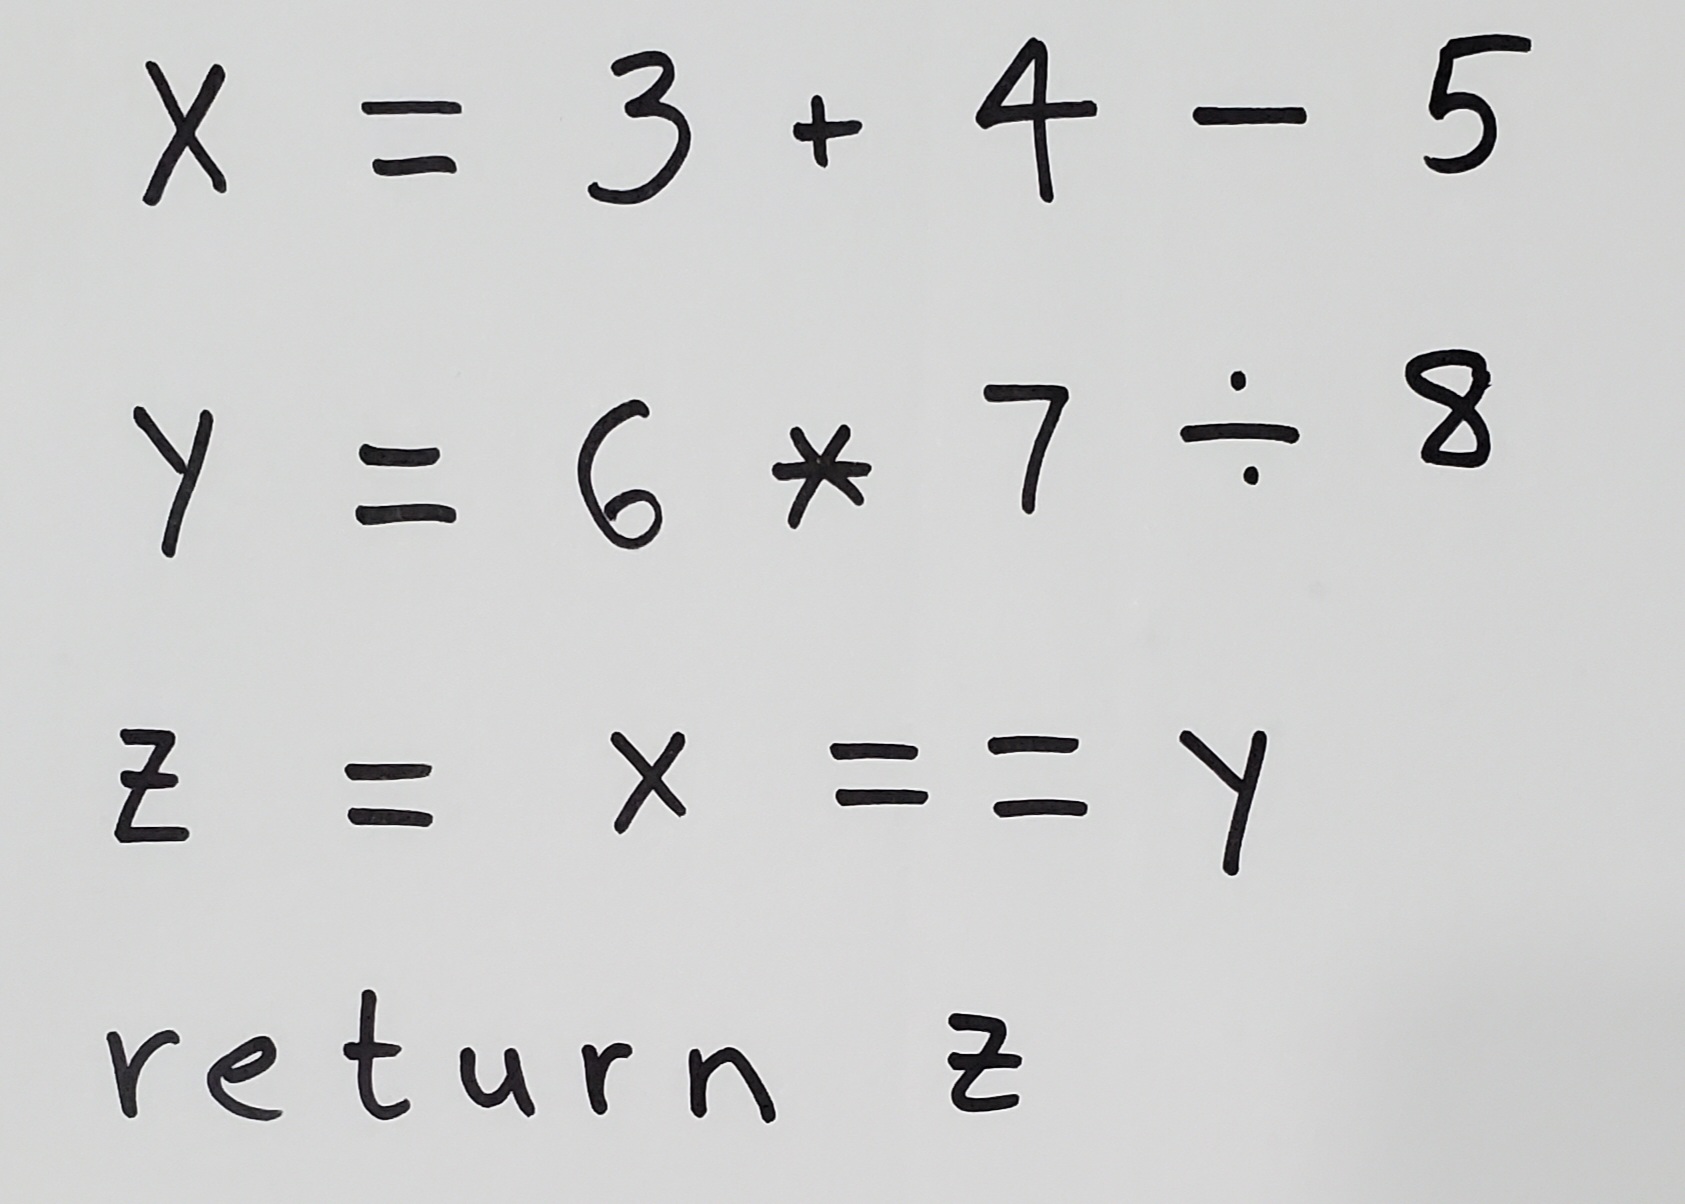 x = 3 + 4 - 5
y = 6 * 7 ÷ 8
z = x == y
return z